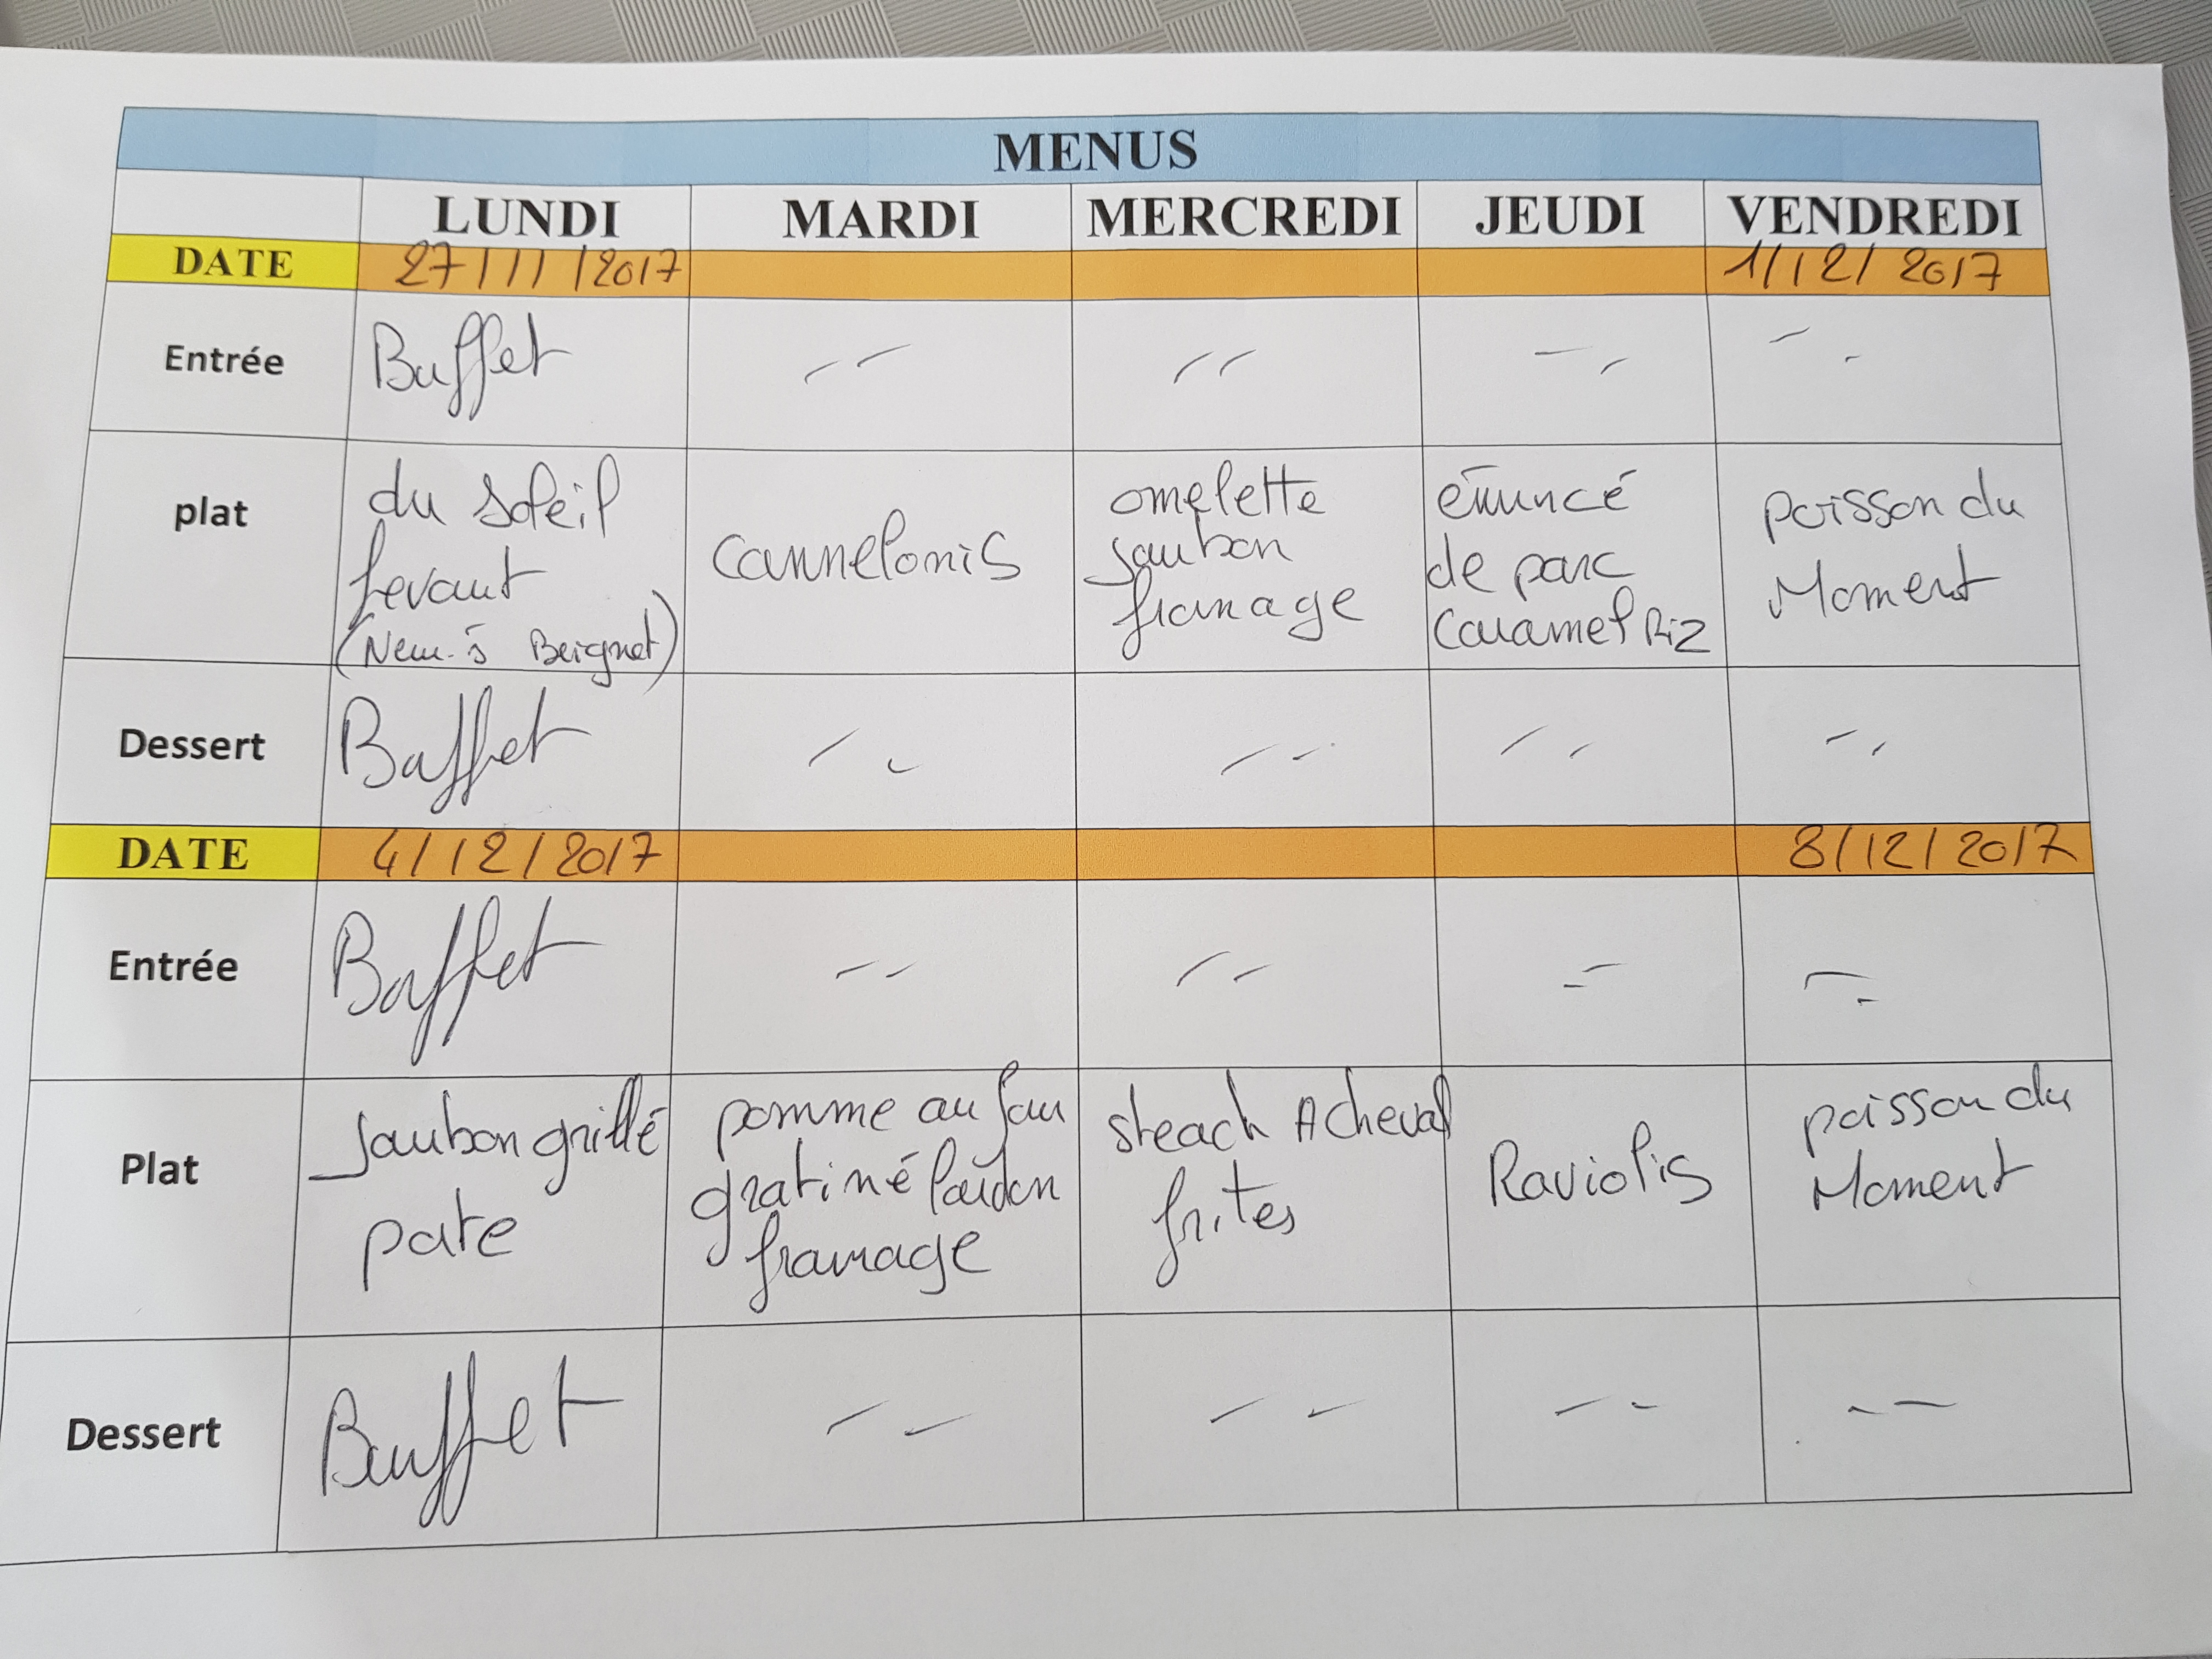 MENUS
LUNDI MARDI MERCREDI JEUDI VENDREDI
DATE 27/11/2017 1/12/2017
Entrée Buffet
plat
du soleil
levant
(Nem-s Beignet)
cannelonis
omelette
jambon
fromage
émincé
de porc
caramel Riz
poisson du
Moment
Dessert Buffet
DATE 4/12/2017 8/12/2017
Entrée Buffet
Plat
Jambon grillé
pate
pomme au four
gratiné lardon
fromage
steach A cheval
frites
Raviolis
poisson du
Moment
Dessert Buffet